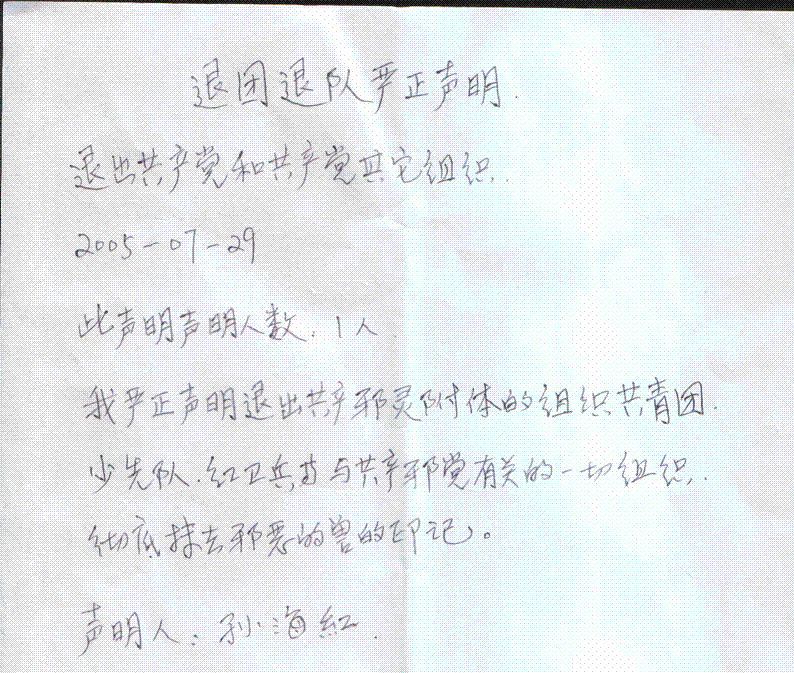 退团退队严正声明.
退出共产党和共产党其它组织.
2005-07-29
此声明声明人数.1人
我严正声明退出共产邪灵附体的组织共青团.
少先队.红卫兵等与共产邪党有关的一切组织.
彻底抹去邪恶的兽的印记。
声明人:孙海紅.